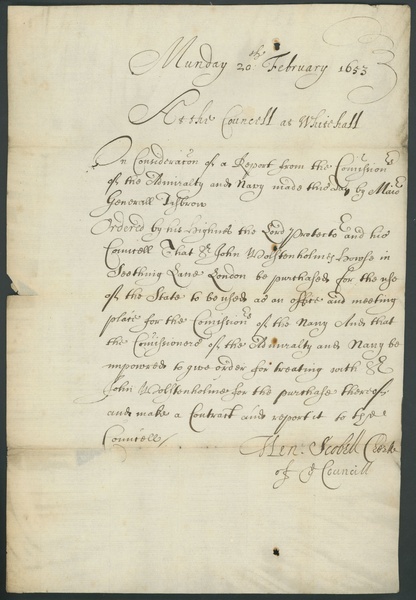 Munday 20th February 1653
At the Councell at Whitehall
In Consideracon of a Report from the Comissionrs
of the Admiralty and Navy made this day by Maior
Generall Disbrow
Ordered by his Highnes the Lord Protector and his
Councell That Sr John Wolstenholmes howse in
Seething Lane London be purchased for the use
of the State to be used as an office and meeting
place for the Comissionrs of the Navy And that
the Comissioners of the Admiralty and Navy be
impowred to give order for treating with Sr
John Wolstenholme for the purchase thereof
and make a Contract and report it to the
Councell
Hen: Scobell Clerk
of ye Councill